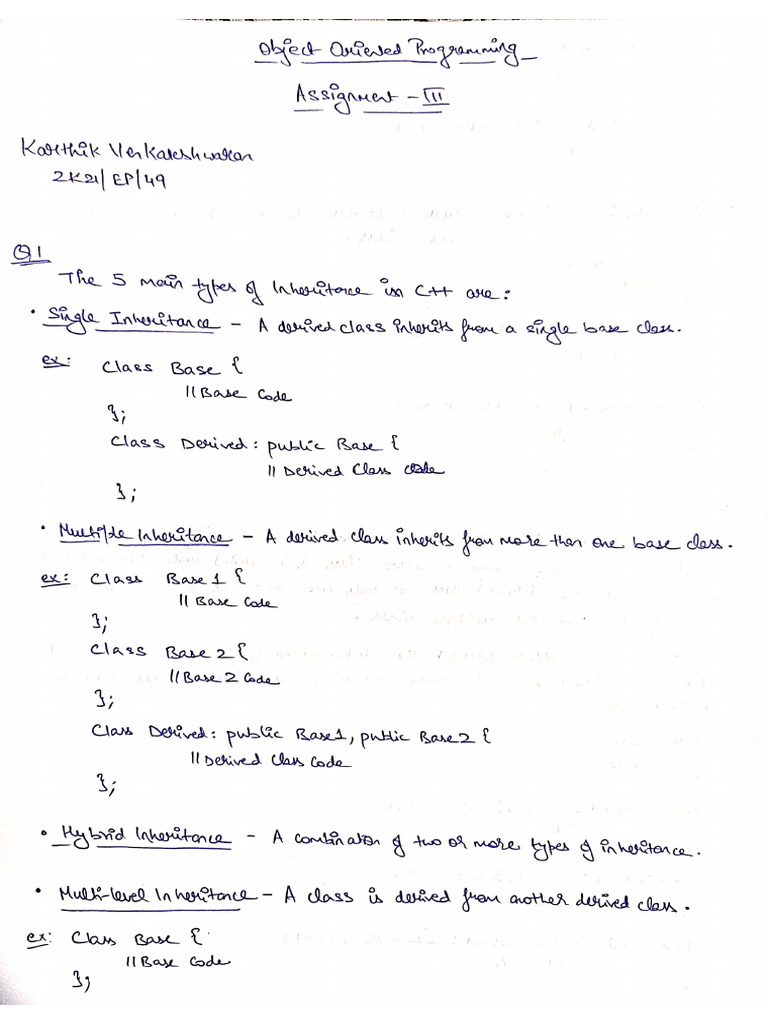 Object Oriented Programming
Assignment - III
Karthik Venkateshwaran
2K21/EP/49
Q1
The 5 main types of Inheritance in C++ are:
• Single Inheritance - A derived class inherits from a single base class.
ex: Class Base {
//Base Code
};
Class Derived: public Base {
// Derived Class code
};
• Multiple Inheritance - A derived class inherits from more than one base class.
ex: Class Base 1 {
// Base Code
};
Class Base 2 {
//Base 2 Code
};
Class Derived: public Base1, public Base2 {
//Derived Class Code
};
• Hybrid Inheritance - A combination of two or more types of inheritance.
• Multi-level Inheritance - A class is derived from another derived class.
ex: Class Base {
//Base Code
};